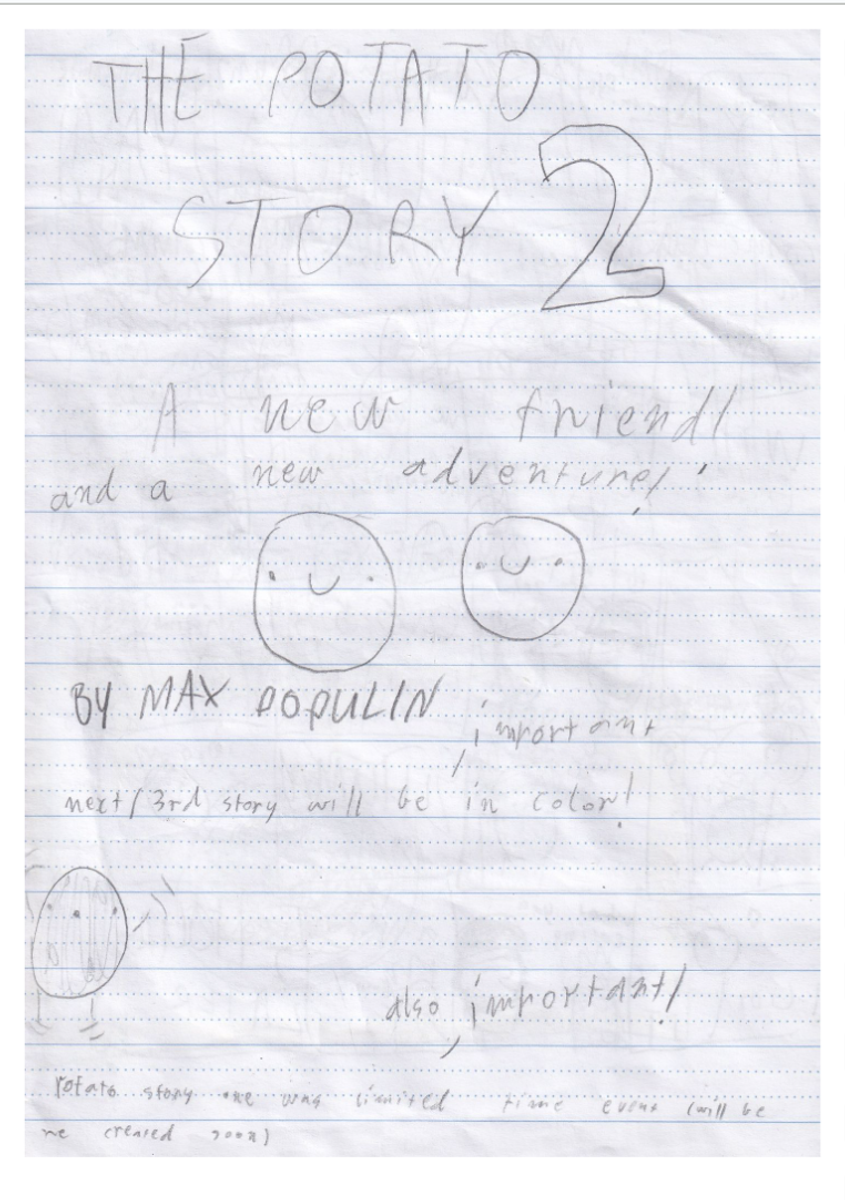 THE POTATO
STORY 2
A new friend!
and a new adventure!
BY MAX POPULIN
important
next/3rd story will be in color!
also important!
Potato story one was limited time event (will be
re created soon)